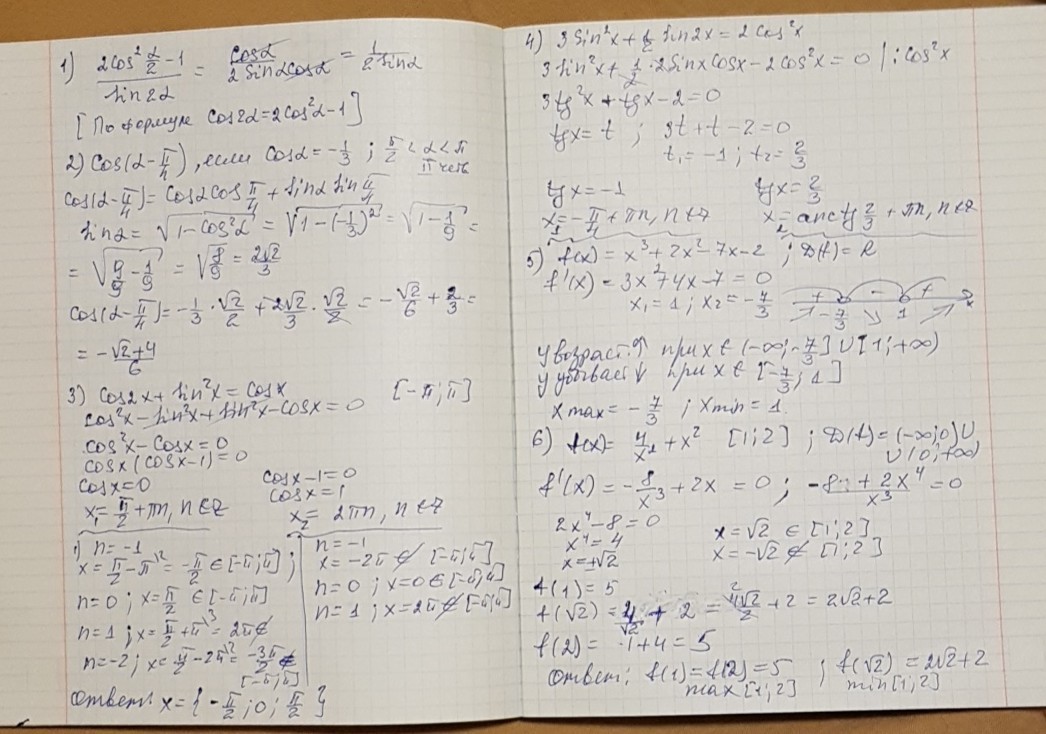 1) (2cos² α/2 - 1)/(sin2α) = cosα/(2sinαcosα) = 1/(2sinα)
[По формуле cos2α = 2cos²α - 1]
2) cos(α - π/4), если cosα = -1/3 ; π/2 < α < π
II четв
cos(α - π/4) = cosαcos π/4 + sinα sin π/4
sinα = √(1 - cos²α) = √(1 - (-1/3)²) = √(1 - 1/9) =
= √(9/9 - 1/9) = √(8/9) = 2√2/3
cos(α - π/4) = -1/3 · √2/2 + 2√2/3 · √2/2 = -√2/6 + 2/3 =
= (-√2+4)/6
3) cos2x + sin²x = cosx [-π; π]
cos²x - sin²x + sin²x - cosx = 0
cos²x - cosx = 0
cosx(cosx-1) = 0
cosx = 0 cosx - 1 = 0
cosx = 1
x₁ = π/2 + πn, n∈Z x₂ = 2πn, n∈Z
1) n = -1
x = π/2 - π = -π/2 ∈ [-π; π] ;
n = 0 ; x = π/2 ∈ [-π; π]
n = 1 ; x = π/2 + π = 2π ∉
n = -2 ; x = π/2 - 2π = -3π/2 ∉
[-π; π]
n = -1
x = -2π ∉ [-π; π]
n = 0 ; x = 0 ∈ [-π; π]
n = 1 ; x = 2π ∉ [-π; π]
Ответ: x = { -π/2 ; 0 ; π/2 }
4) 3sin²x + 1/2 sin2x = 2cos²x
3sin²x + 1/2 · 2sinxcosx - 2cos²x = 0 | : cos²x
3tg²x + tgx - 2 = 0
tgx = t ; 3t + t - 2 = 0
t₁ = -1 ; t₂ = 2/3
tgx = -1 tgx = 2/3
x₁ = -π/4 + πn, n∈Z x₂ = arctg 2/3 + πn, n∈Z
5) f(x) = x³ + 2x² - 7x - 2 ; D(f) = R
f'(x) = 3x² + 4x - 7 = 0
x₁ = 1 ; x₂ = -7/3
+ - +
-7/3 1 x
y возраст.↑ при x ∈ (-∞; -7/3] ∪ [1; +∞)
y убывает↓ при x ∈ [-7/3; 1]
xmax = -7/3 ; xmin = 1
6) f(x) = 4/x² + x² [1; 2] ; D(f) = (-∞; 0) ∪
∪ (0; +∞)
f'(x) = -8/x³ + 2x = 0 ; (-8 + 2x⁴)/x³ = 0
2x⁴ - 8 = 0
x⁴ = 4
x = ±√2
x = √2 ∈ [1; 2]
x = -√2 ∉ [1; 2]
f(1) = 5
f(√2) = 4/√2 + 2 = 4√2/2 + 2 = 2√2 + 2
f(2) = 1 + 4 = 5
Ответ: f(1) = f(2) = 5 ; f(√2) = 2√2 + 2
max [1; 2] min [1; 2]